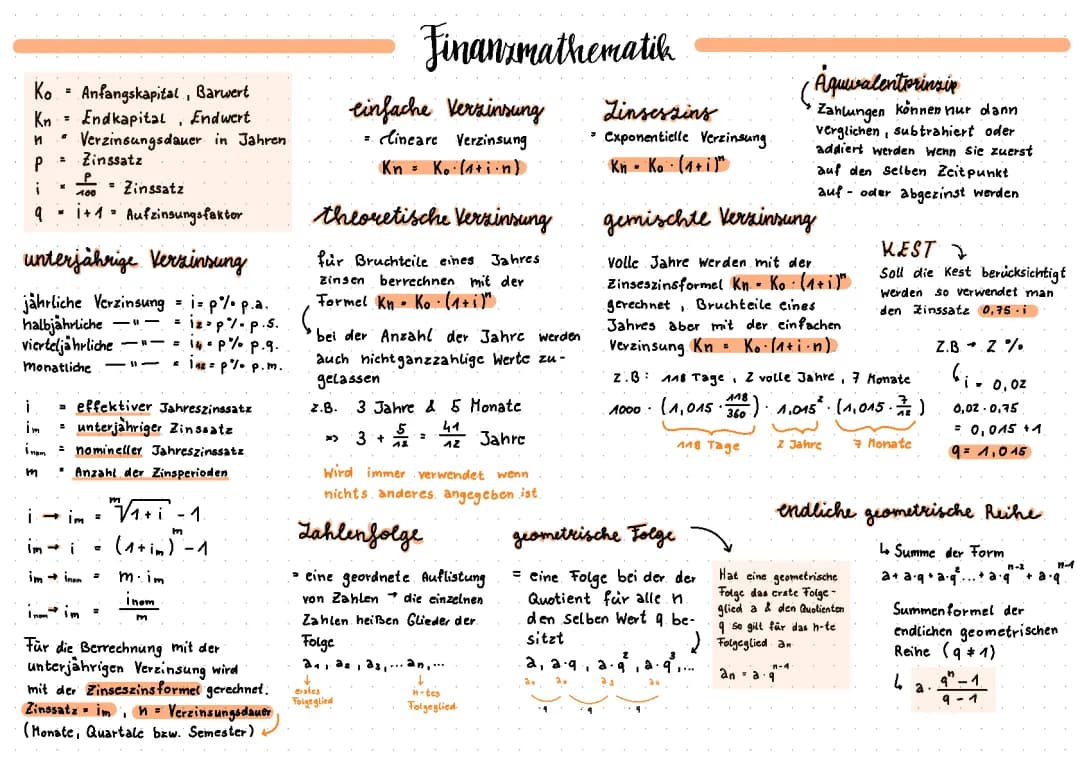 Finanzmathematik
K₀ = Anfangskapital, Barwert
Kn = Endkapital, Endwert
n = Verzinsungsdauer in Jahren
p = Zinssatz
i = p/100 = Zinssatz
q = i+1 = Aufzinsungsfaktor
einfache Verzinsung
= lineare Verzinsung
Kn = K₀·(1+i·n)
Zinseszins
= exponentielle Verzinsung
Kn = K₀·(1+i)ⁿ
Äquivalentprinzip
Zahlungen können nur dann
verglichen, subtrahiert oder
addiert werden wenn sie zuerst
auf den selben Zeitpunkt
auf- oder abgezinst werden
unterjährige Verzinsung
jährliche Verzinsung = i = p% p.a.
halbjährliche —"— = i₂ = p% p.s.
vierteljährliche —"— = i₄ = p% p.q.
monatliche —"— = i₁₂ = p% p.m.
i = effektiver Jahreszinssatz
im = unterjähriger Zinssatz
inom = nomineller Jahreszinssatz
m = Anzahl der Zinsperioden
i → im = ᵐ√1+i - 1
im → i = (1+im)ᵐ - 1
im → inom = m·im
inom → im = inom/m
Für die Berrechnung mit der
unterjährigen Verzinsung wird
mit der Zinseszinsformel gerechnet.
Zinssatz = im, n = Verzinsungsdauer
(Monate, Quartale bzw. Semester)
theoretische Verzinsung
für Bruchteile eines Jahres
Zinsen berrechnen mit der
Formel Kn = K₀·(1+i)ⁿ
bei der Anzahl der Jahre werden
auch nichtganzzahlige Werte zu-
gelassen
z.B. 3 Jahre & 5 Monate
=> 3 + 5/12 = 41/12 Jahre
Wird immer verwendet wenn
nichts anderes angegeben ist
gemischte Verzinsung
Volle Jahre werden mit der
Zinseszinsformel Kn = K₀·(1+i)ⁿ
gerechnet, Bruchteile eines
Jahres aber mit der einfachen
Verzinsung Kn = K₀·(1+i·n)
z.B: 118 Tage, 2 volle Jahre, 7 Monate
1000 · (1,015 · 118/360) · 1,015² · (1,015 · 7/12)
118 Tage 2 Jahre 7 Monate
KEST
Soll die Kest berücksichtigt
werden so verwendet man
den Zinssatz 0,75·i
Z.B → 2%
i = 0,02
0,02·0,75
= 0,015 +1
q = 1,015
Zahlenfolge
= eine geordnete Auflistung
von Zahlen → die einzelnen
Zahlen heißen Glieder der
Folge
a₁, a₂, a₃,... an,...
erstes
Folgeglied
n-tes
Folgeglied
geometrische Folge
= eine Folge bei der der
Quotient für alle n
den selben Wert q be-
sitzt
a, a·q, a·q², a·q³,...
·q ·q ·q
Hat eine geometrische
Folge das erste Folge-
glied a & den Quotienten
q so gilt für das n-te
Folgeglied an
an = a·qⁿ⁻¹
endliche geometrische Reihe
↳ Summe der Form
a+a·q+a·q²...+a·qⁿ⁻² + a·qⁿ⁻¹
Summenformel der
endlichen geometrischen
Reihe (q ≠ 1)
↳ a · qⁿ-1/q-1